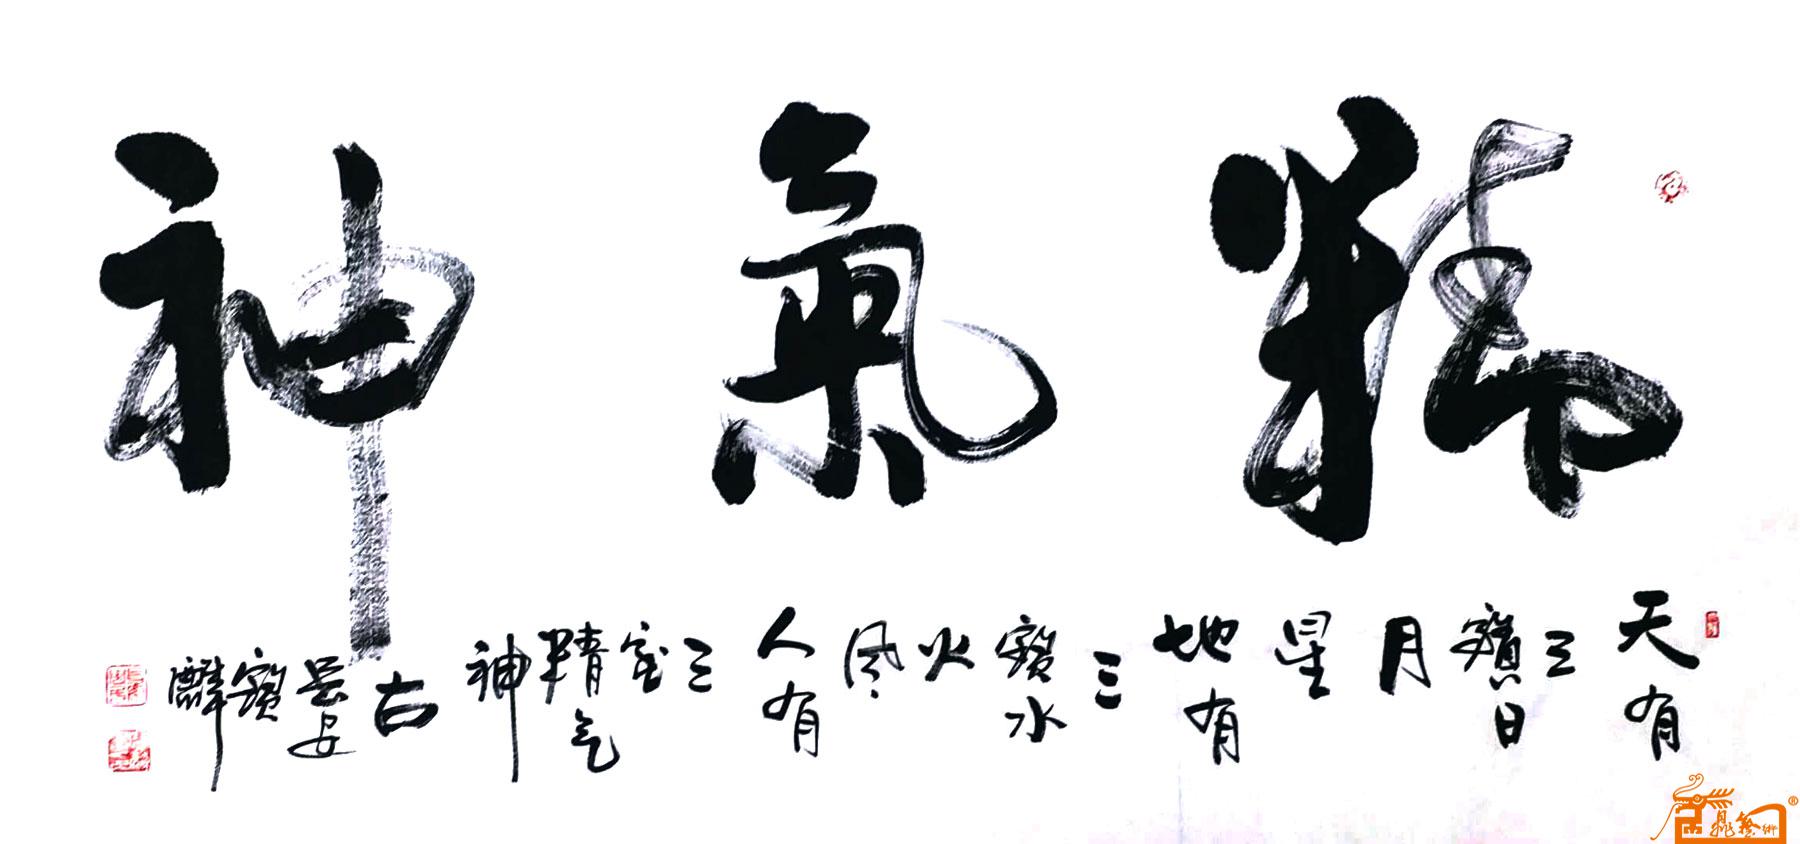 精氣神
天有
三寶日
月
星
地有
三
寶水
火
風
人有
三
宝
精气
神
古
長安
寶
麟